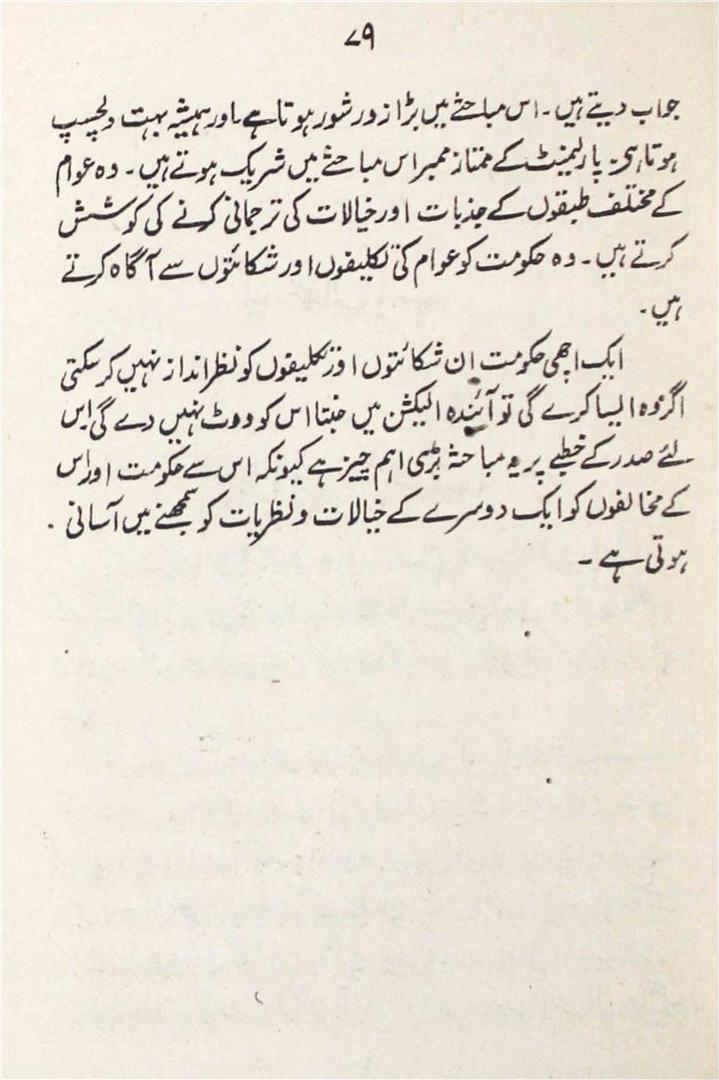 ۷۹
جواب دیتے ہیں۔ اس مباحثے میں بڑا زور شور ہوتا ہے۔ اور ہمیشہ بہت دلچسپ
ہوتا ہی۔ پارلیمنٹ کے ممتاز ممبر اس مباحثے میں شریک ہوتے ہیں۔ وہ عوام
کے مختلف طبقوں کے جذبات اور خیالات کی ترجمانی کرنے کی کوشش
کرتے ہیں۔ وہ حکومت کو عوام کی تکلیفوں اور شکائتوں سے آگاہ کرتے
ہیں۔
ایک اچھی حکومت ان شکائتوں اور تکلیفوں کو نظر انداز نہیں کر سکتی
اگر وہ ایسا کرے گی تو آئندہ الیکشن میں جنتا اس کو ووٹ نہیں دے گی اس
لئے صدر کے خطبے پر یہ مباحثہ بڑی اہم چیز ہے کیونکہ اس سے حکومت اور اس
کے مخالفوں کو ایک دوسرے کے خیالات و نظریات کو سمجھنے میں آسانی
ہوتی ہے۔